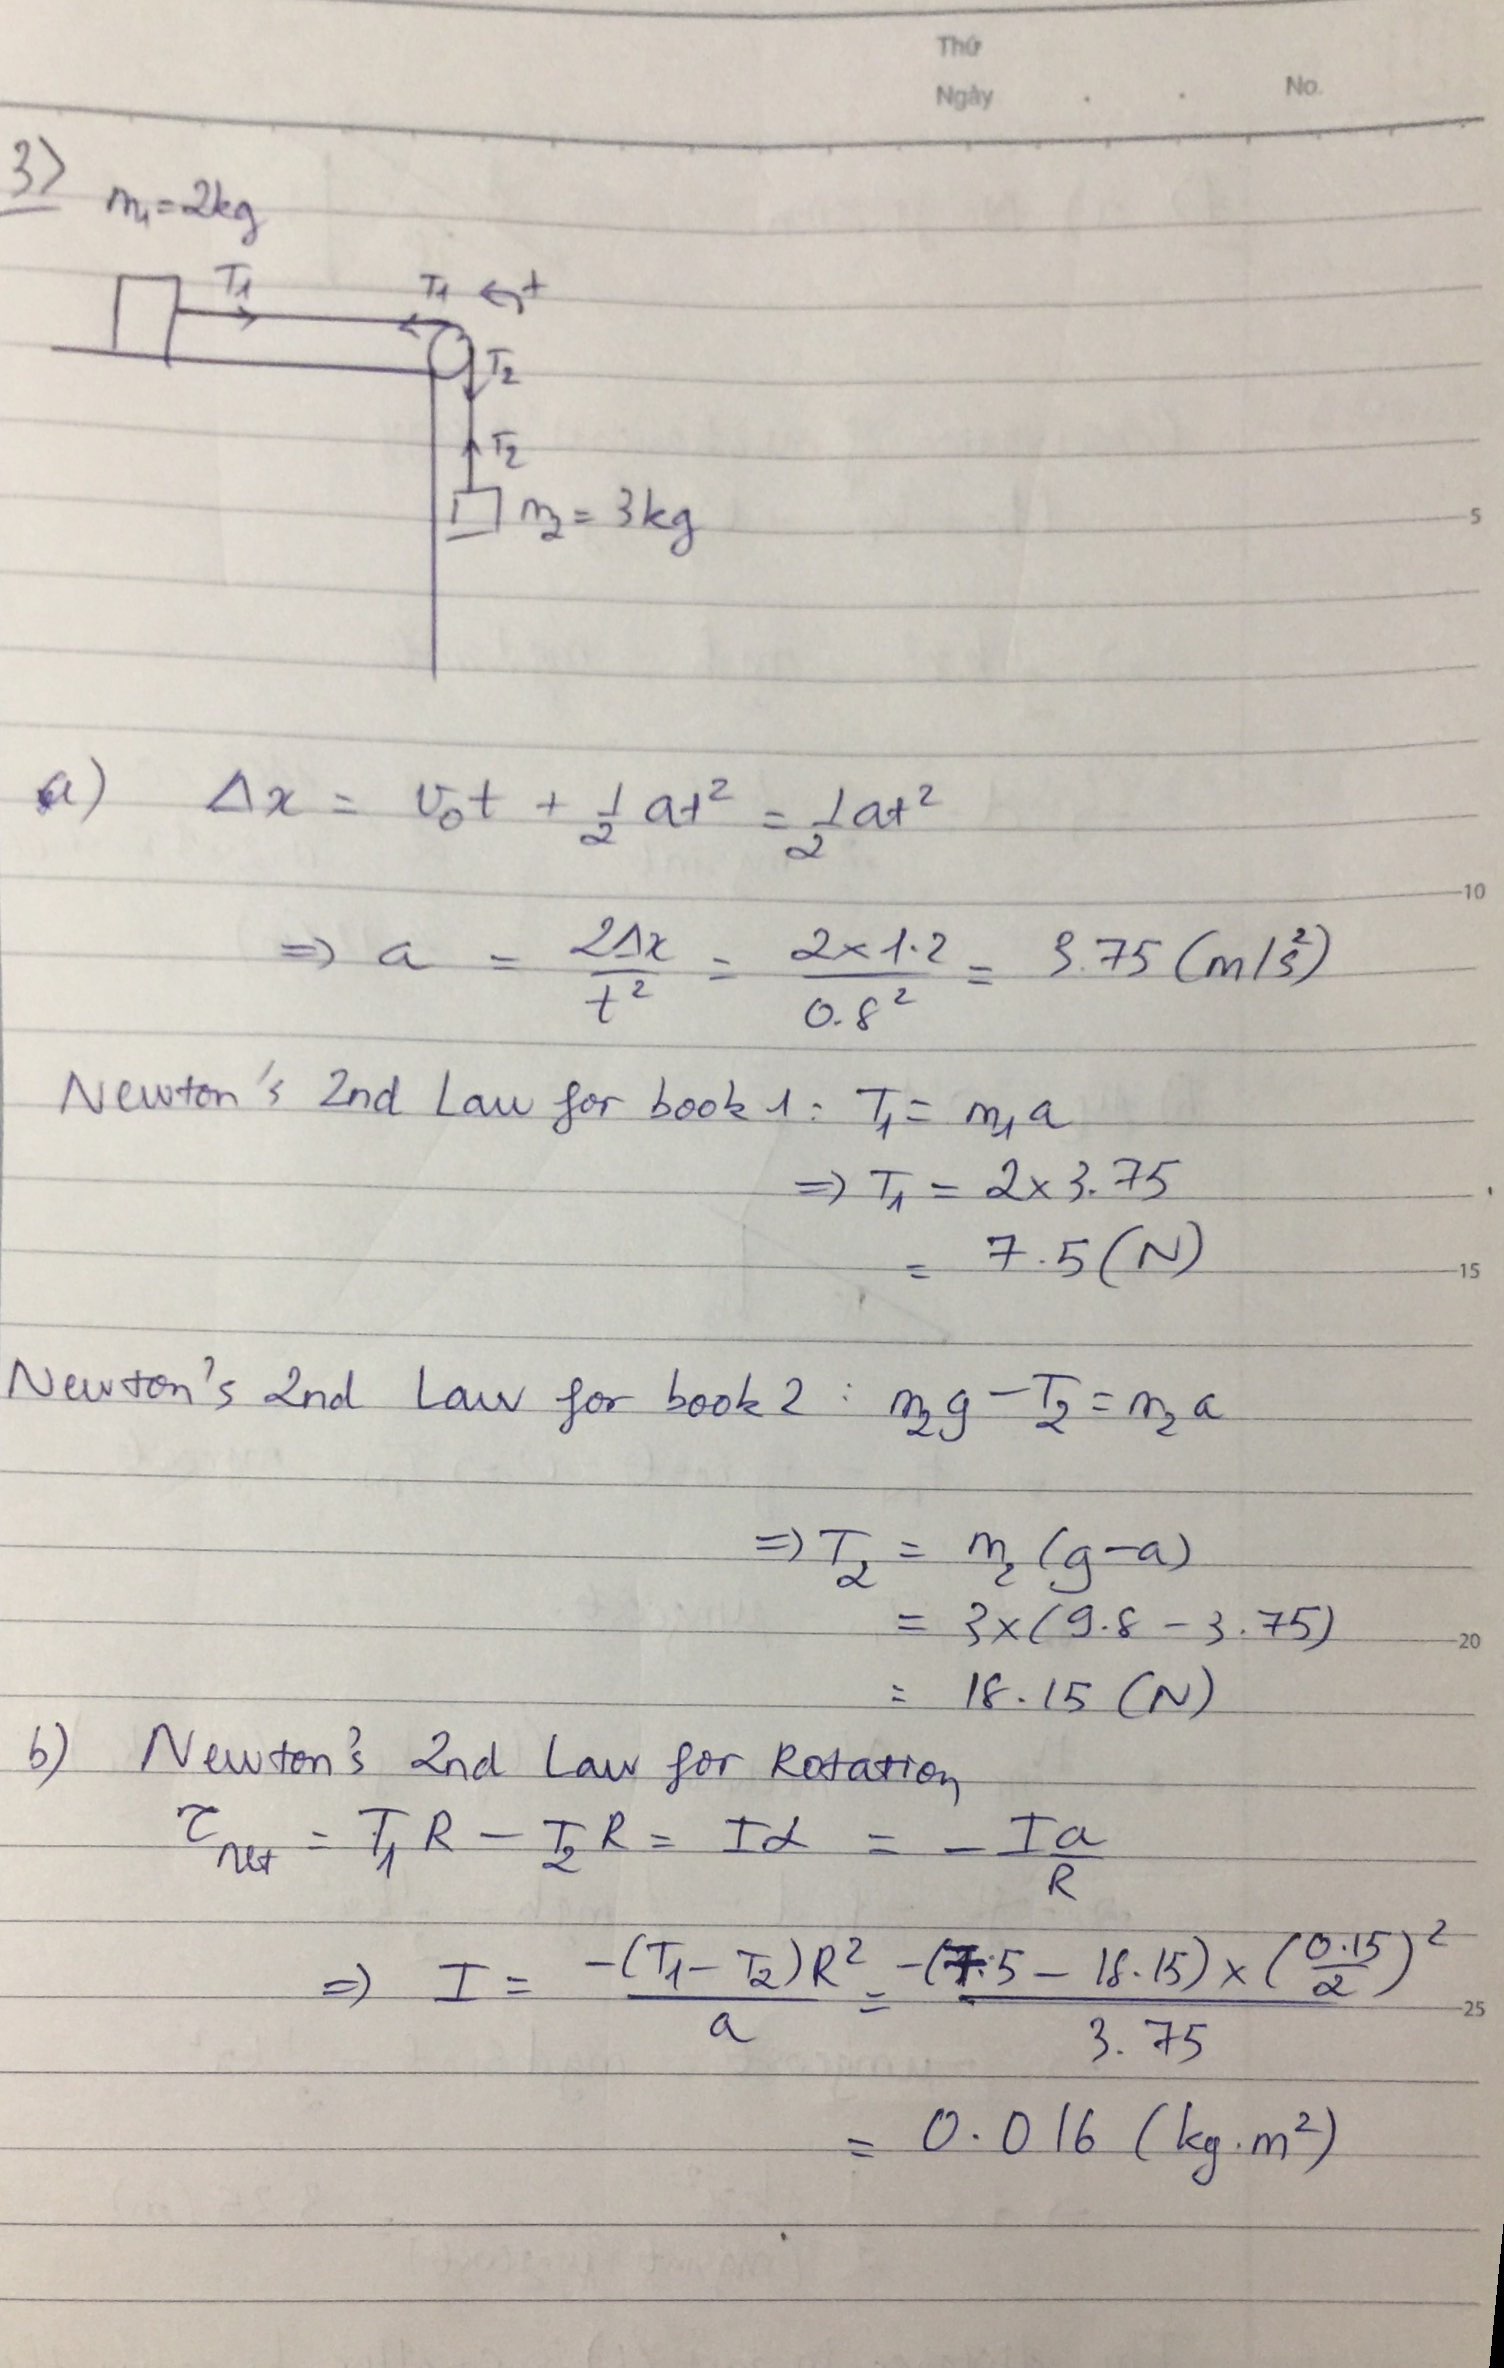 Thứ
Ngày . . No.
3>
m₁ = 2kg
T₁ T₁ +
T₂
T₂
m₂ = 3kg
5
a) Δx = v₀t + 1/2 at² = 1/2 at²
10
=> a = 2Δx/t² = 2×1.2/0.8² = 3.75 (m/s²)
Newton's 2nd Law for book 1: T₁ = m₁a
=> T₁ = 2×3.75
= 7.5 (N)
15
Newton's 2nd Law for book 2: m₂g - T₂ = m₂a
=> T₂ = m₂(g-a)
= 3×(9.8 - 3.75)
20
= 18.15 (N)
b) Newton's 2nd Law for Rotation
τnet = T₁R - T₂R = Iα = - Ia/R
=> I = -(T₁ - T₂)R²/a = -(7.5 - 18.15)×(0.15/2)²/3.75
25
= 0.016 (kg.m²)